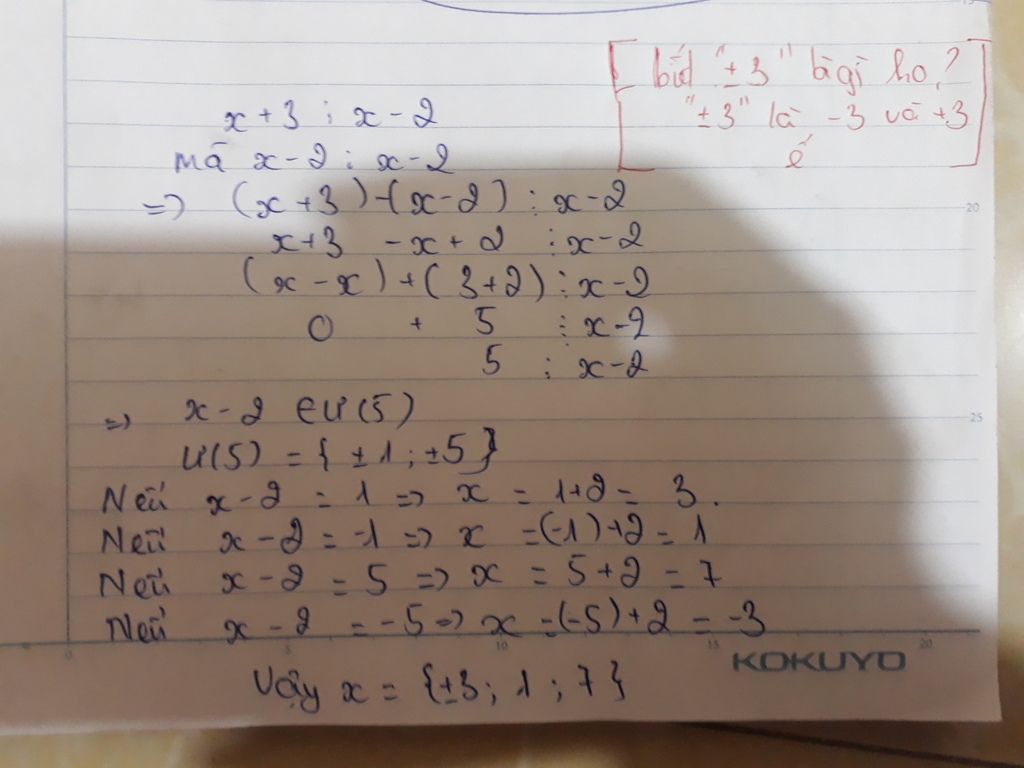 biết "±3" là gì ho?
"±3" là -3 và +3
ế
x+3 ⋮ x-2
mà x-2 ⋮ x-2
=> (x+3)-(x-2) ⋮ x-2
x+3 -x+2 ⋮ x-2
(x-x)+(3+2) ⋮ x-2
0 + 5 ⋮ x-2
5 ⋮ x-2
=> x-2 ∈Ư(5)
Ư(5) = {±1;±5}
Nếu x-2 = 1 => x = 1+2 = 3.
Nếu x-2 = -1 => x =(-1)+2 = 1
Nếu x-2 = 5 => x = 5+2 = 7
Nếu x-2 = -5 => x =(-5)+2 = -3
Vậy x = {±3; 1; 7}
20
25
0 5 10 15 20
KOKUYO